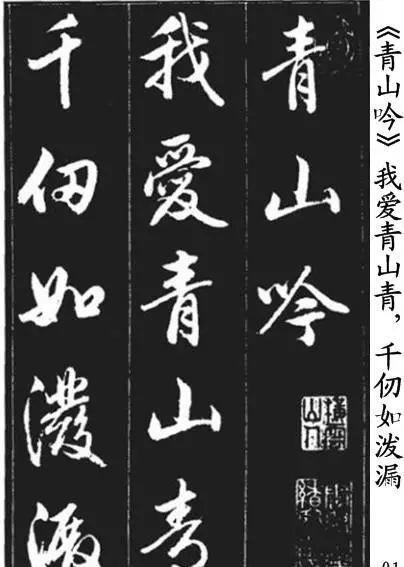 《青山吟》我爱青山青，千仞如泼漏
青山吟
我愛青山青
千仞如潑